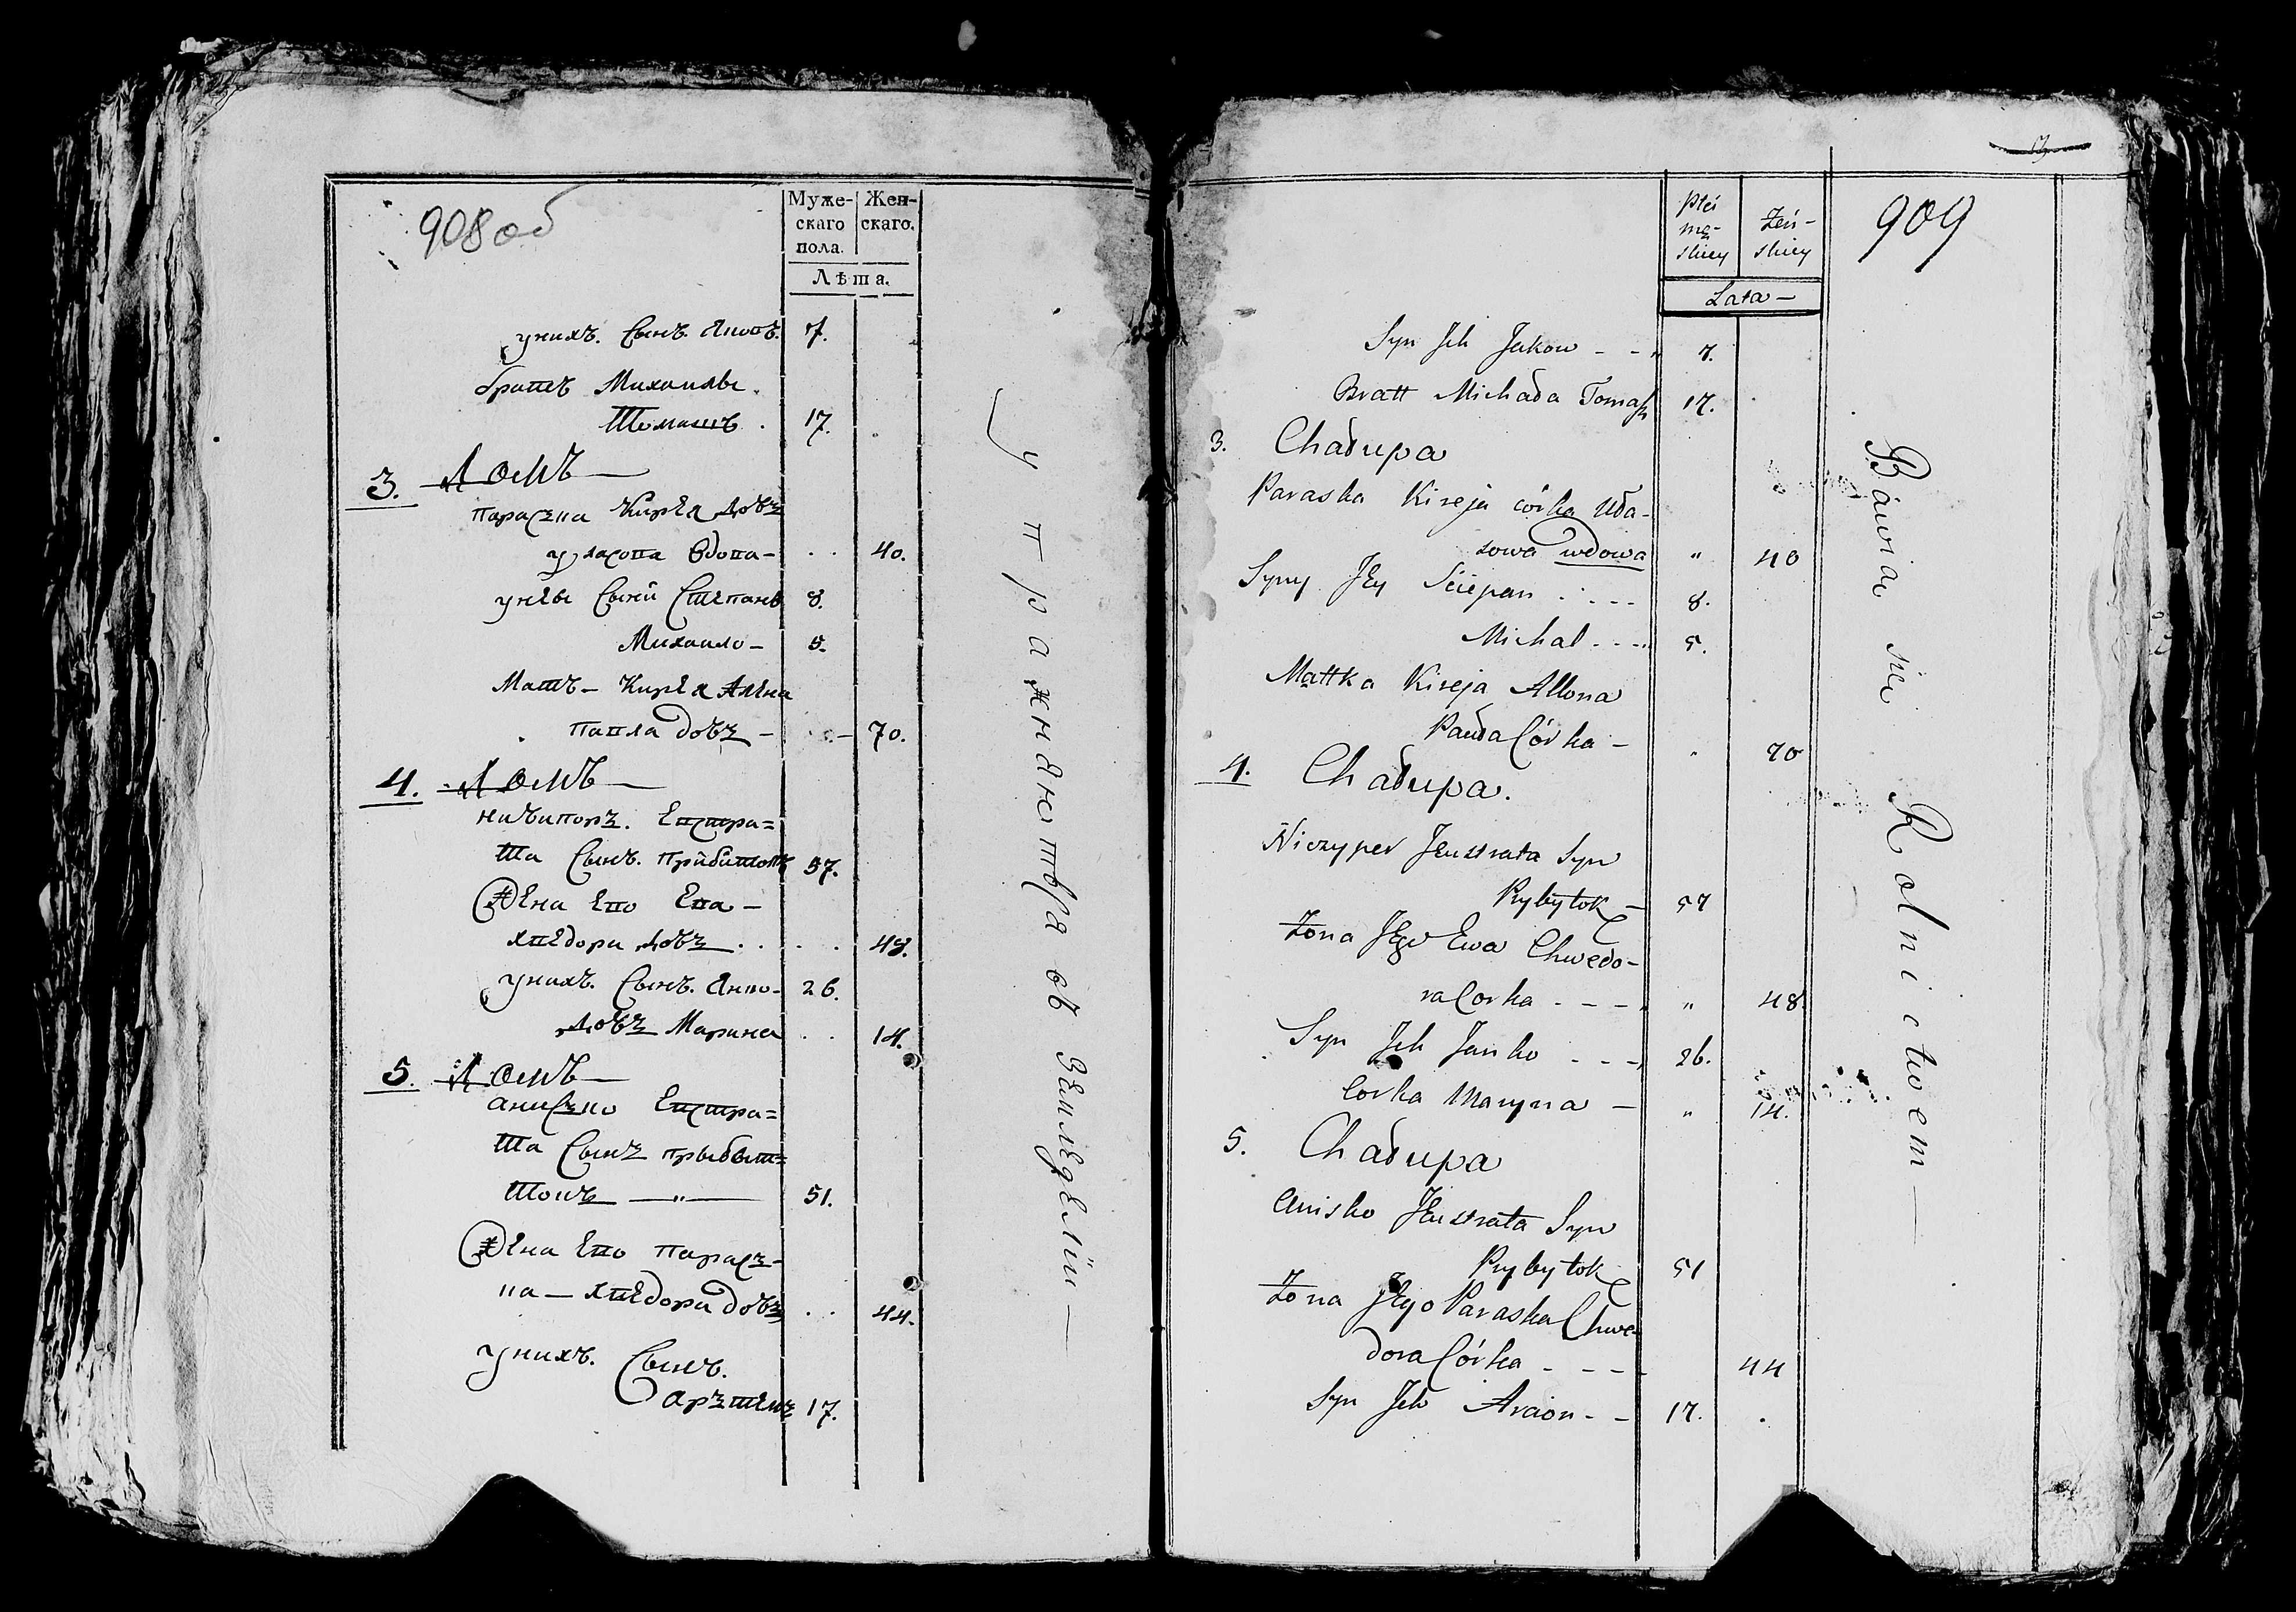 908 об
Муже-
скаго
пола.
Жен-
скаго.
Лѣта.
унихъ. Сынъ. Яковъ. 7.
братъ Михаилы
Томашъ. 17.
3. Домъ —
Параска Кирея дочъ
власова вдова — 40.
унеы Сыни Степанъ 8.
Михаило — 5.
Мать — Кирея Алена
Павла дочъ — 70.
4. Домъ —
ничипоръ. Евстра=
та Сынъ. Прибитокъ 57.
Жена Его Ева —
хведора дочъ 48.
унихъ. Сынъ. Янко — 26.
дочъ Марина 14.
5. Домъ —
аниско Евстра=
та Сынъ прыбыт=
токъ — " — 51.
Жена Его Парас-
ка — хведора дочъ 44.
унихъ. Сынъ.
17.
Упражняютъся въ Земледелїи —
3
909
Płci
mę-
skiey
Żeń-
skiey
Lata —
Syn Jch Jakow - - " 7.
Bratt Michała Tomasz 17.
3. Chałupa
Paraska Kireja córka Uła-
sowa wdowa " 40
Syny Jey Ściepan - - - 8.
Michał - - - " 5.
Mattka Kireja Allona
Pauła Córka — " 70
4. Chałupa.
Niczyper Jeustrata Syn
Pybytok — 57
Żona Jego Ewa Chwedo-
ra Corka - - - " 48.
Syn Jch Janko - - - 26.
Corka Maryna — " 14.
5. Chałupa
Anisko Jeustrata Syn
Prybytok 51
Żona Jego Paraska Chwe-
dora Córka - - - 44
Syn Jch - - 17.
Bawią się Rolnictwem —